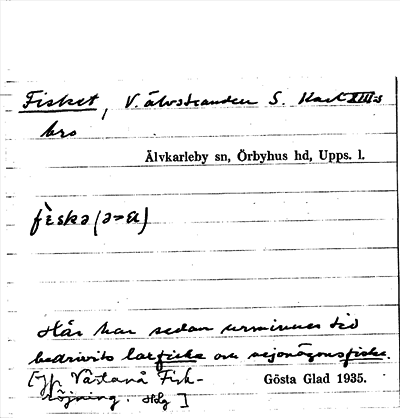 Fisket, V. älvstranden S. Karl XIII:s
bro
Älvkarleby sn, Örbyhus hd, Upps. l.
fiskə (ə>a)
Här har sedan urminnes tid
bedrivits laxfiske och nejonögonsfiske.
[Jfr Västanå Fisk-
Gösta Glad 1935.
höjning. Hdg ]